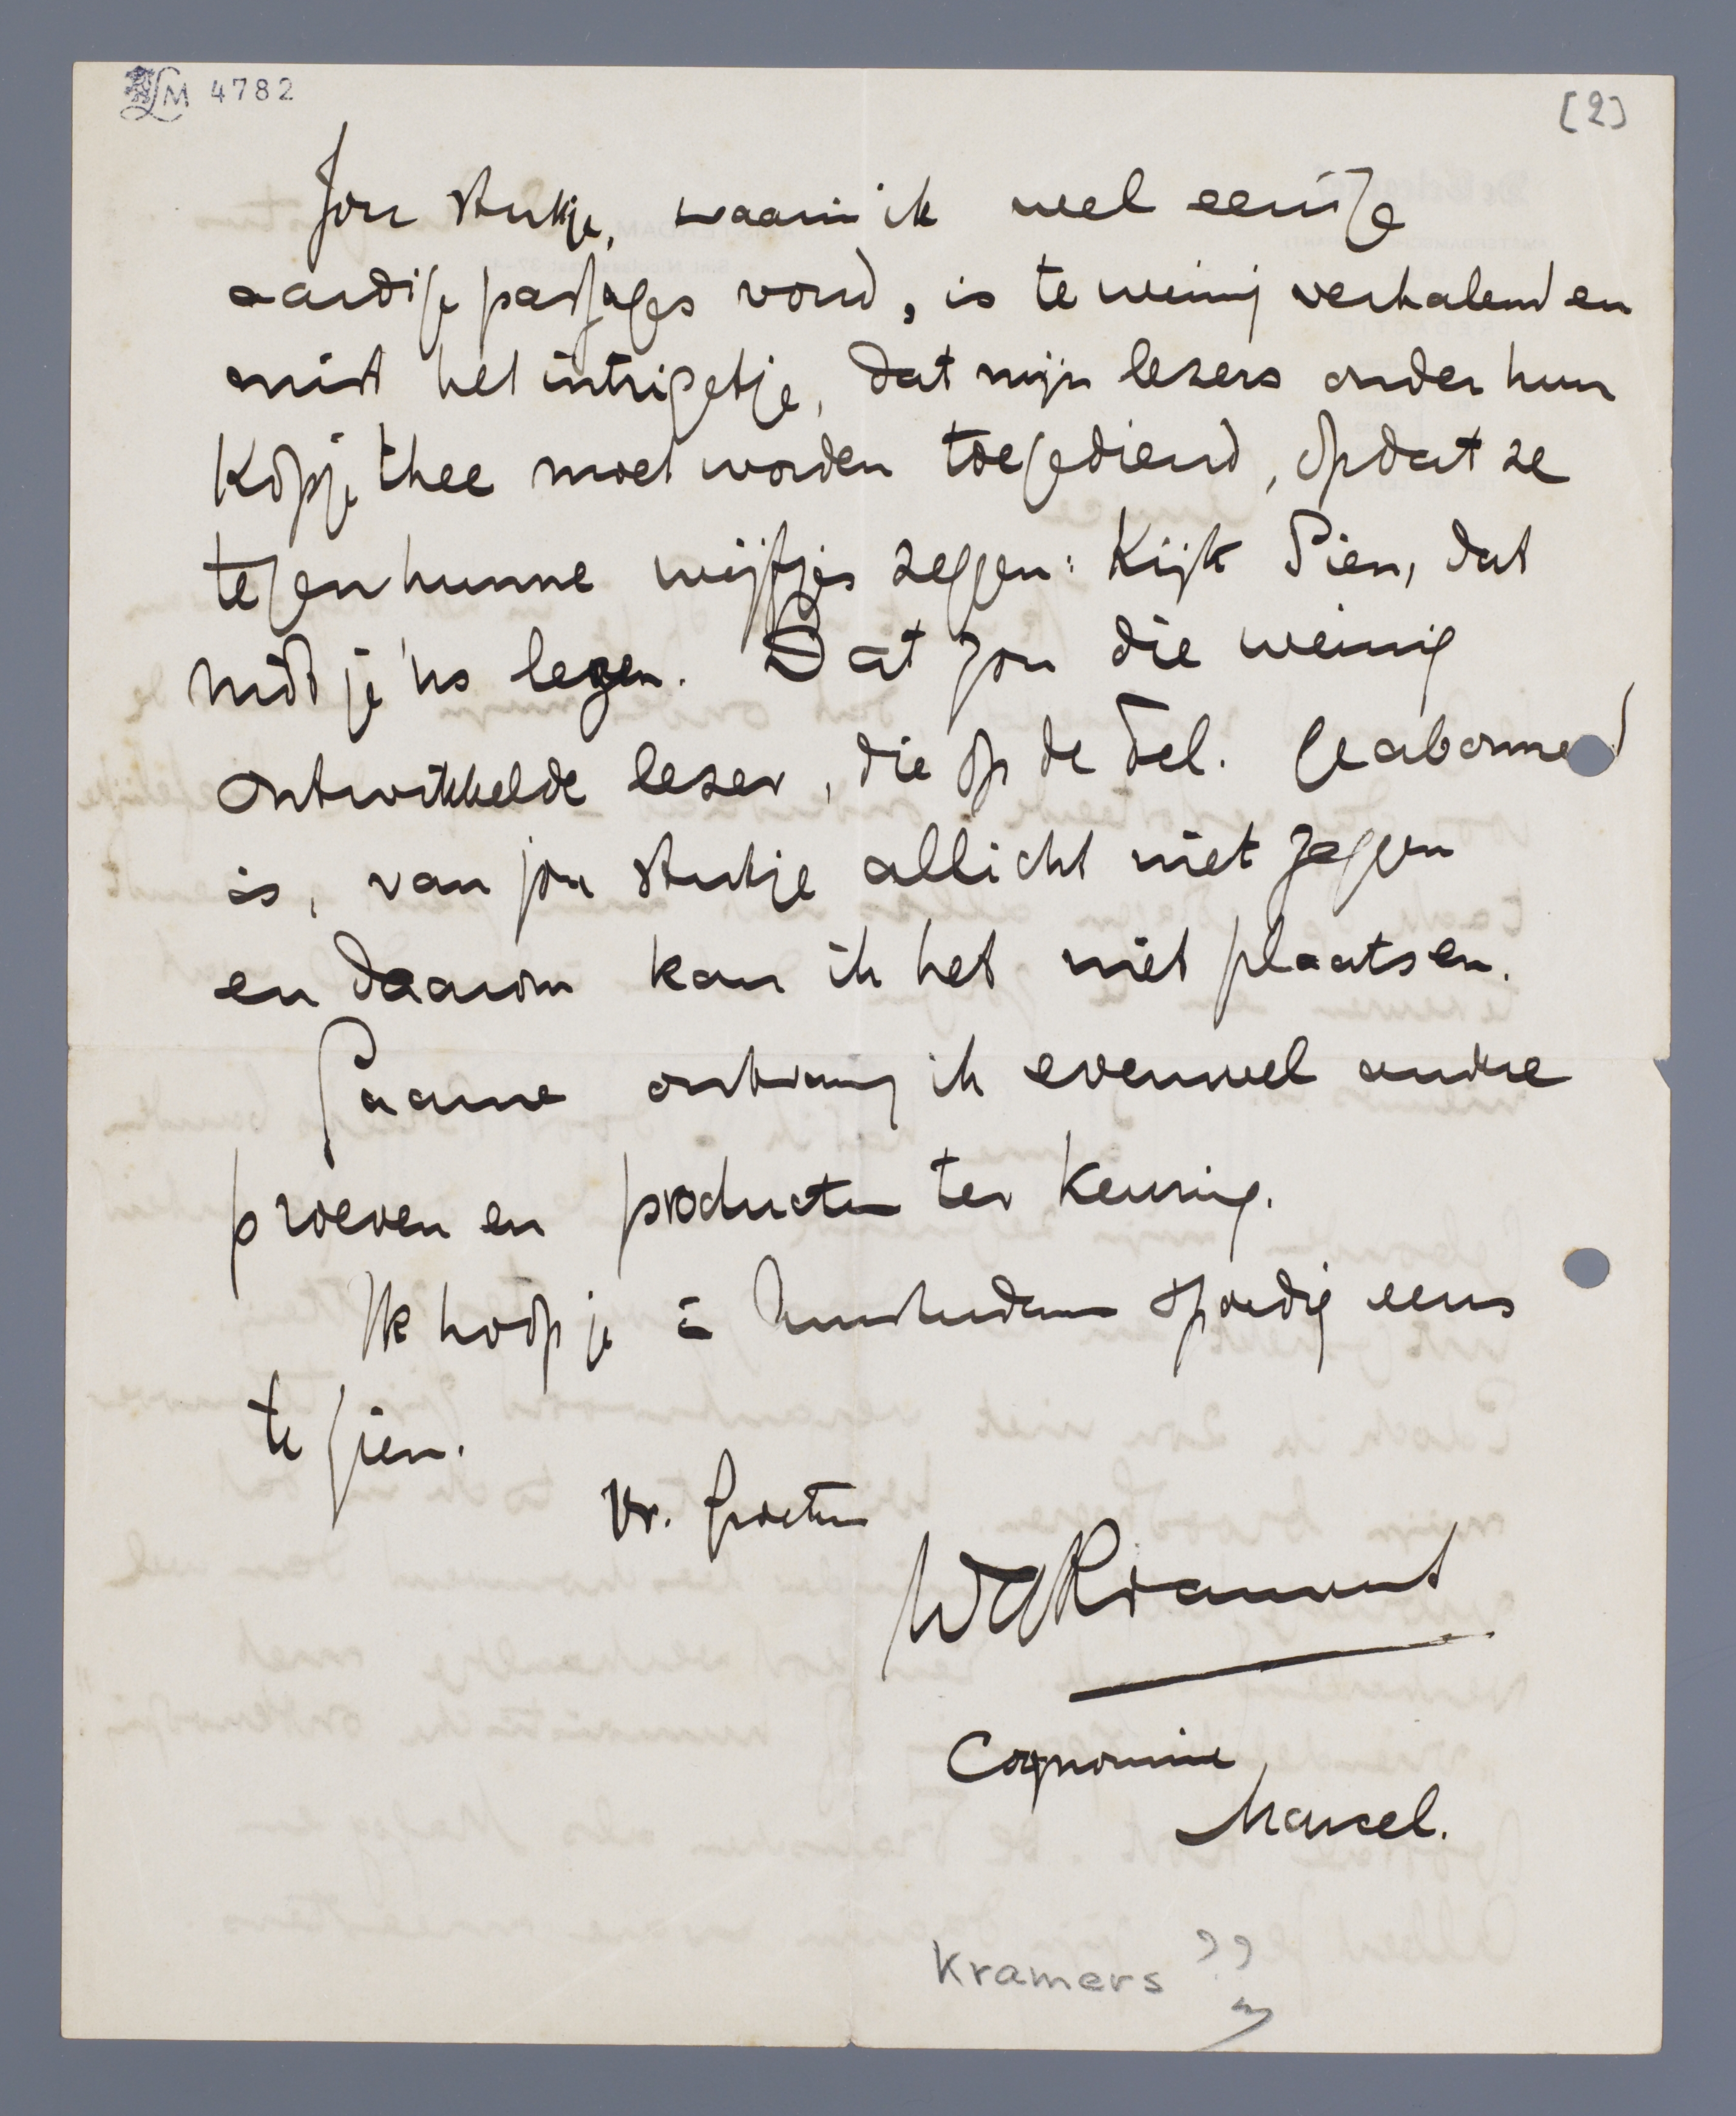 LM 4782
[2]
Jou stukje, waarin ik wel eenige
aardige passages vond, is te weinig verhalend en
mist het intrigetje, dat mijn lezers onder hun
Kopje thee moet worden toegediend, opdat ze
tegen hunne wijfjes zeggen: Kijk Sien, dat
mot je 'ns lezen. Dat zou die weinig
ontwikkelde lezer, die op de Tel. geabonneerd
is, van jou stukje allicht niet zeggen
en daarom kan ik het niet plaatsen.
Gaarne ontvang ik evenwel andre
proeven en producten ter Keuring.
Ik hoop je in Amsterdam spoedig eens
te zien.
Vr. Groeten
Cognomine
Marcel.
Kramers ??